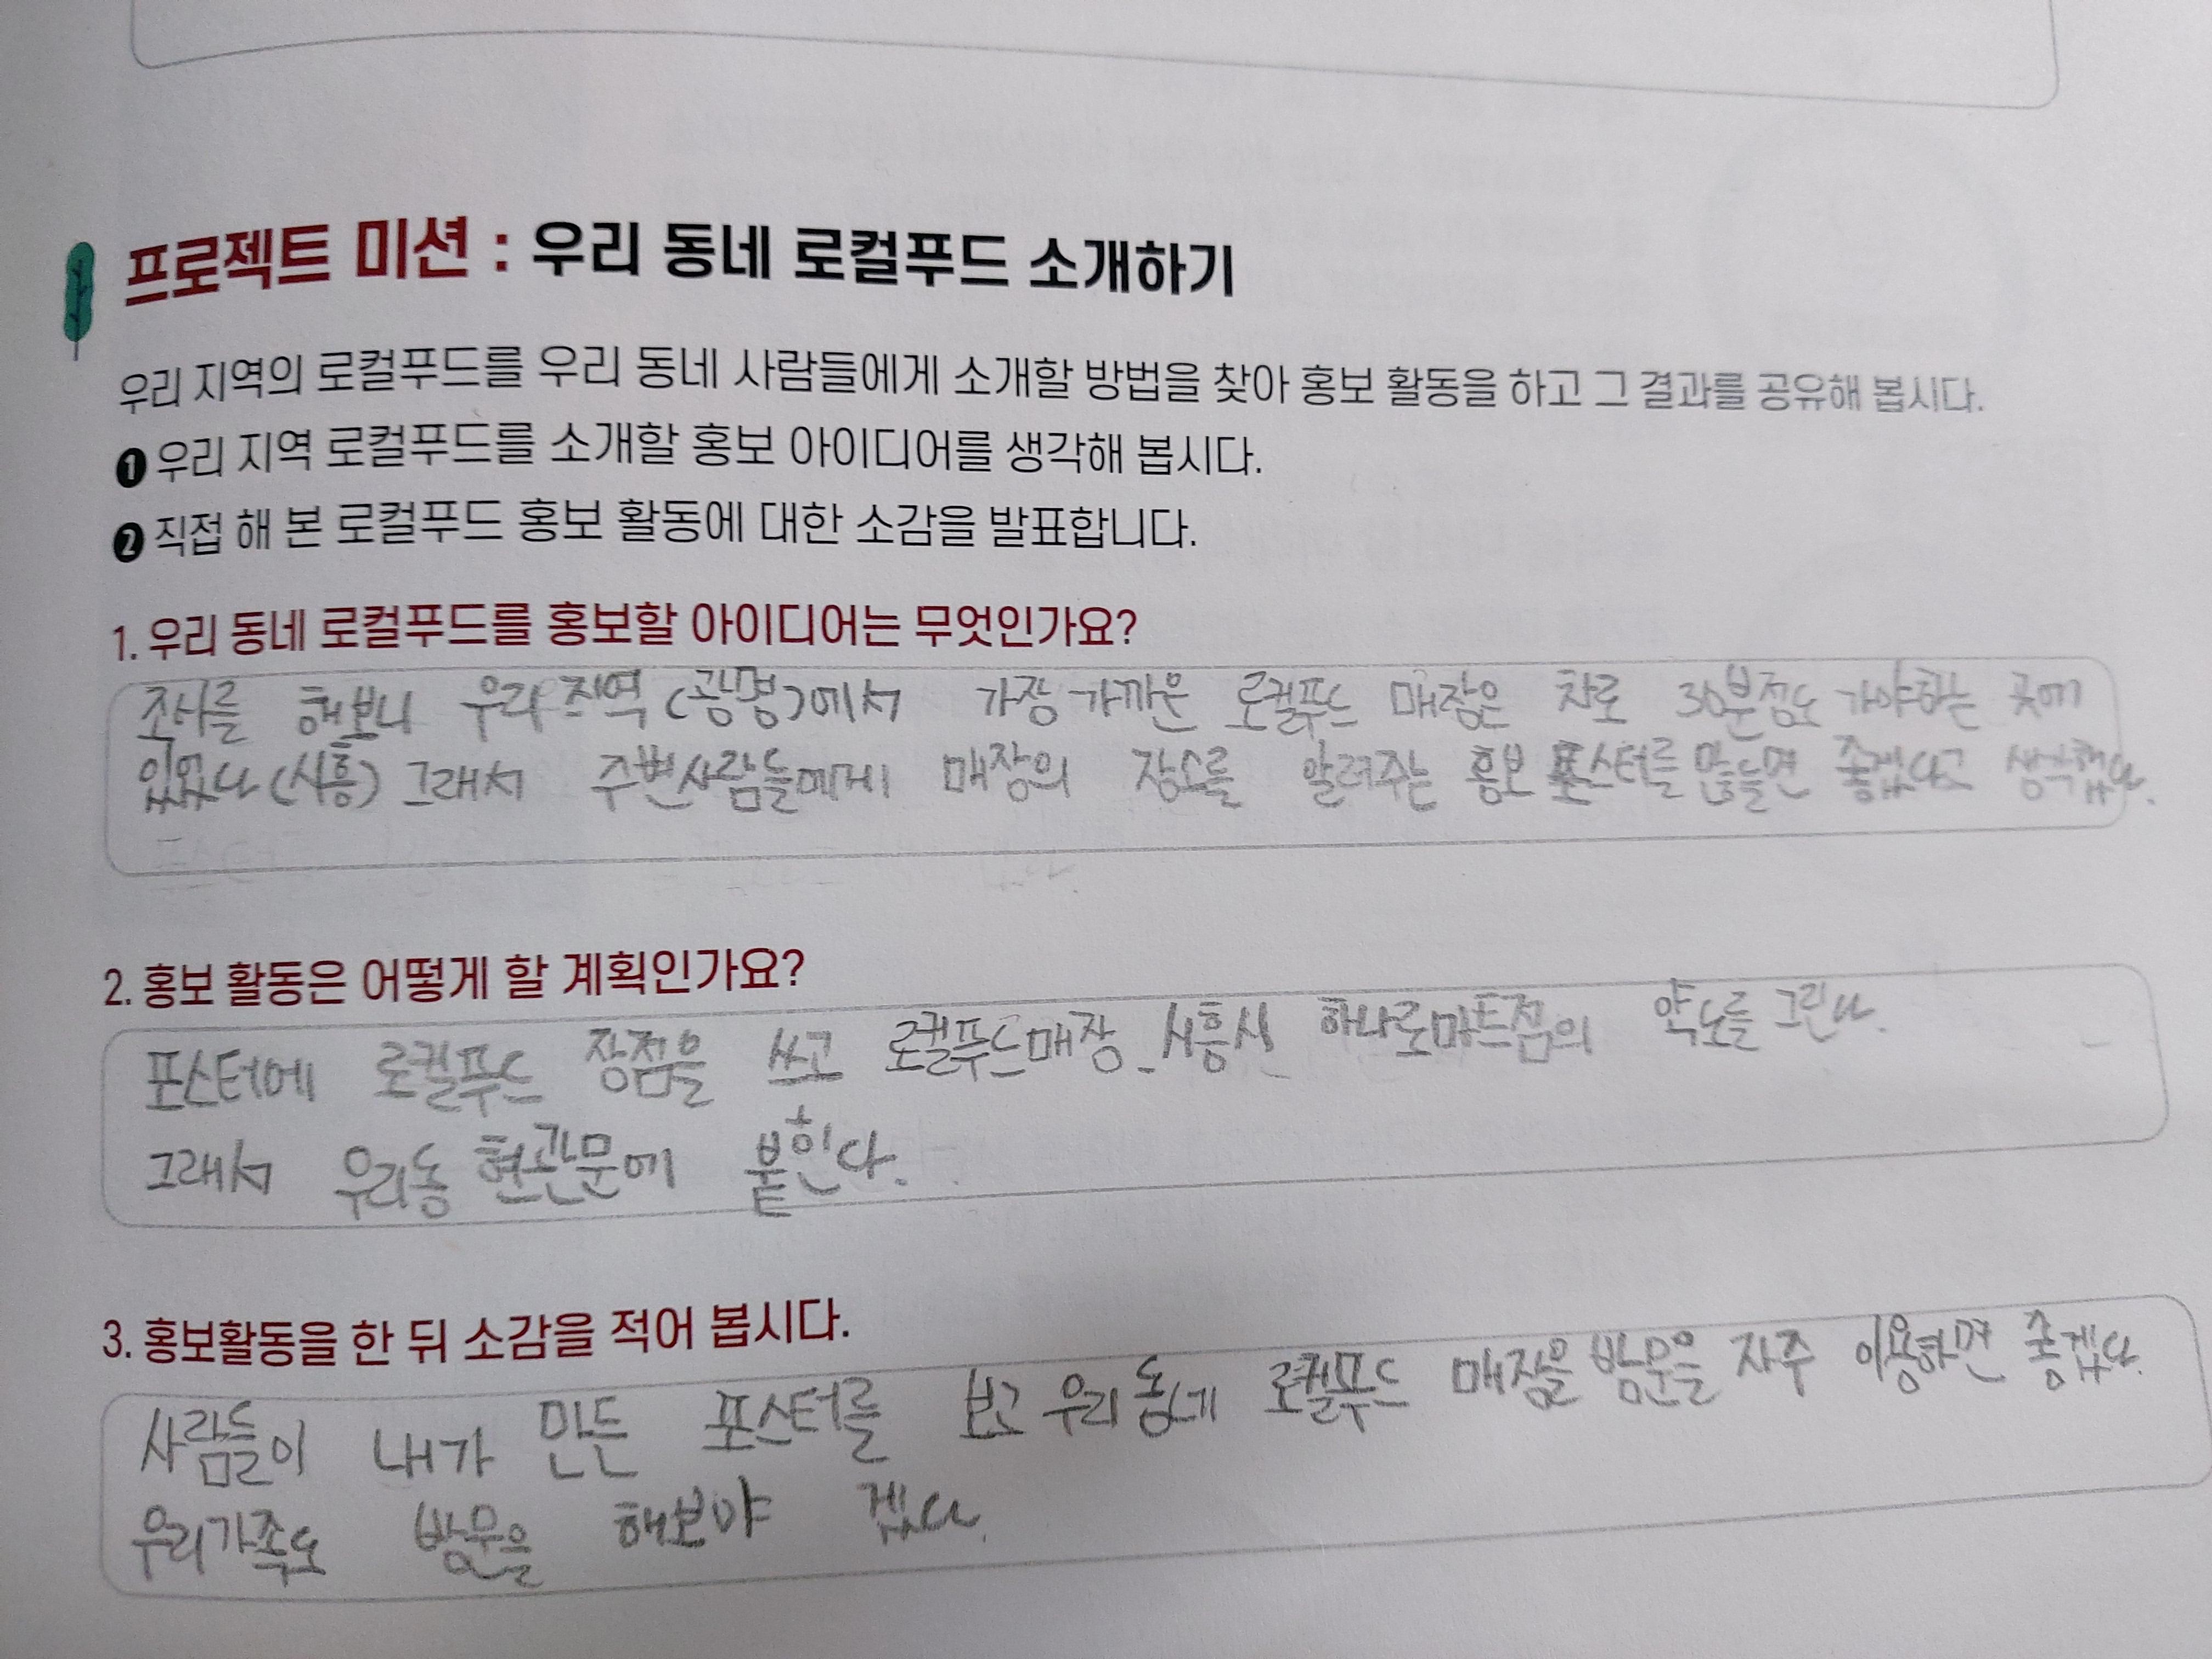 프로젝트 미션 : 우리 동네 로컬푸드 소개하기
우리 지역의 로컬푸드를 우리 동네 사람들에게 소개할 방법을 찾아 홍보 활동을 하고 그 결과를 공유해 봅시다.
❶ 우리 지역 로컬푸드를 소개할 홍보 아이디어를 생각해 봅시다.
❷ 직접 해 본 로컬푸드 홍보 활동에 대한 소감을 발표합니다.
1. 우리 동네 로컬푸드를 홍보할 아이디어는 무엇인가요?
조사를 해보니 우리 지역 (광명)에서 가장 가까운 로컬푸드 매장은 차로 30분정도 가야하는 곳에
있었다 (시흥) 그래서 주변사람들에게 매장의 장소를 알려주는 홍보 포스터를 만들면 좋겠다고 생각했다.
2. 홍보 활동은 어떻게 할 계획인가요?
포스터에 로컬푸드 장점을 쓰고 로컬푸드매장_시흥시 하나로마트점의 약도를 그린다.
그래서 우리동 현관문에 붙힌다.
3. 홍보활동을 한 뒤 소감을 적어 봅시다.
사람들이 내가 만든 포스터를 보고 우리 동네 로컬푸드 매장을 방문을 자주 이용하면 좋겠다.
우리가족도 방문을 해보야 겠다.